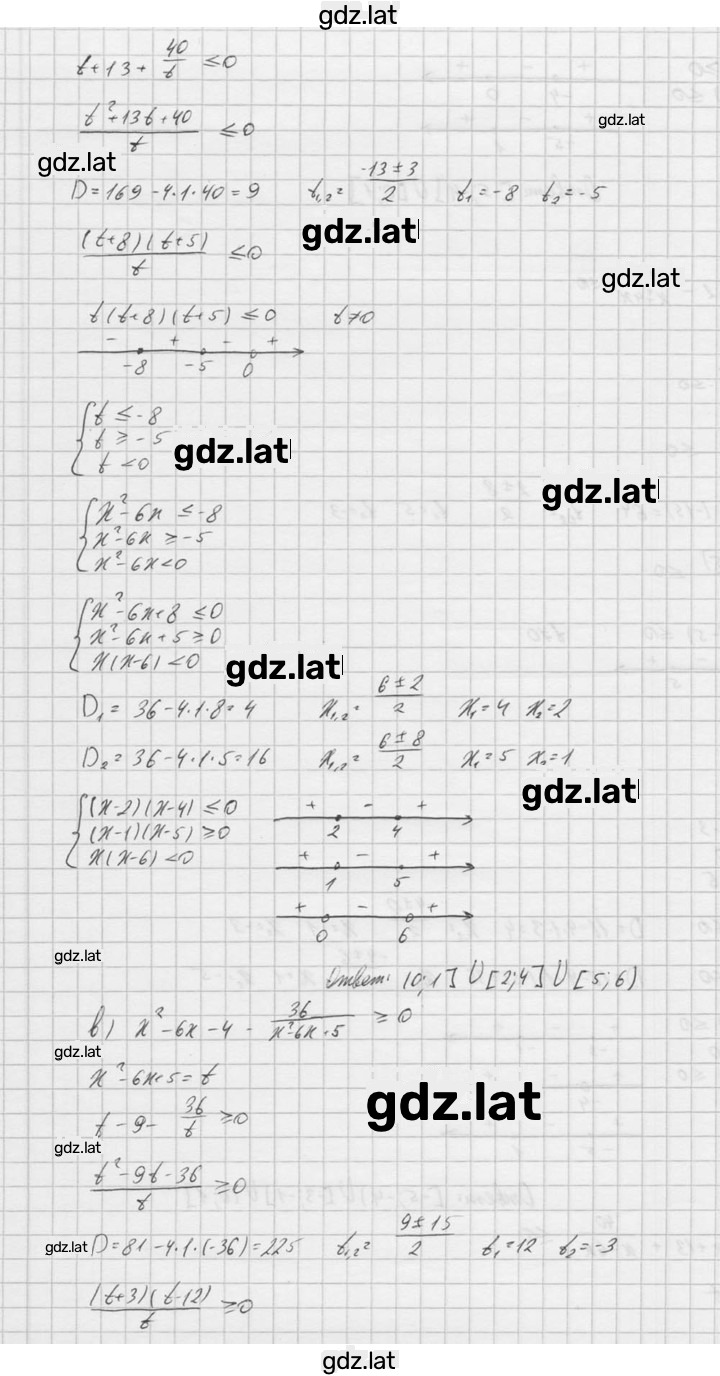 gdz.lat
t+13+ 40/t ≤0
gdz.lat
t²+13t+40 / t ≤0
gdz.lat
D=169-4·1·40=9 t₁,₂= -13±3 / 2 t₁=-8 t₂=-5
gdz.lat
(t+8)(t+5) / t ≤0
gdz.lat
t(t+8)(t+5) ≤0 t≠0
- + - +
-8 -5 0
t ≤-8
t ≥-5
t <0
gdz.lat
gdz.lat
x²-6x ≤-8
x²-6x ≥-5
x²-6x<0
x²-6x+8 ≤0
x²-6x+5≥0
x(x-6)<0
gdz.lat
D₁= 36-4·1·8=4 x₁,₂= 6±2 / 2 x₁=4 x₂=2
D₂=36-4·1·5=16 x₁,₂= 6±8 / 2 x₁=5 x₂=1
gdz.lat
(x-2)(x-4) ≤0 + - +
2 4
(x-1)(x-5) ≥0
x(x-6)<0 + - +
1 5
+ - +
0 6
gdz.lat
Ответ: (0;1]∪[2;4]∪[5;6)
в) x²-6x-4 - 36 / x²-6x+5 ≥0
gdz.lat
x²-6x+5=t
gdz.lat
t-9- 36/t ≥0
gdz.lat
t²-9t-36 / t ≥0
gdz.lat
D=81-4·1·(-36)=225 t₁,₂= 9±15 / 2 t₁=12 t₂=-3
(t+3)(t-12) / t ≥0
gdz.lat